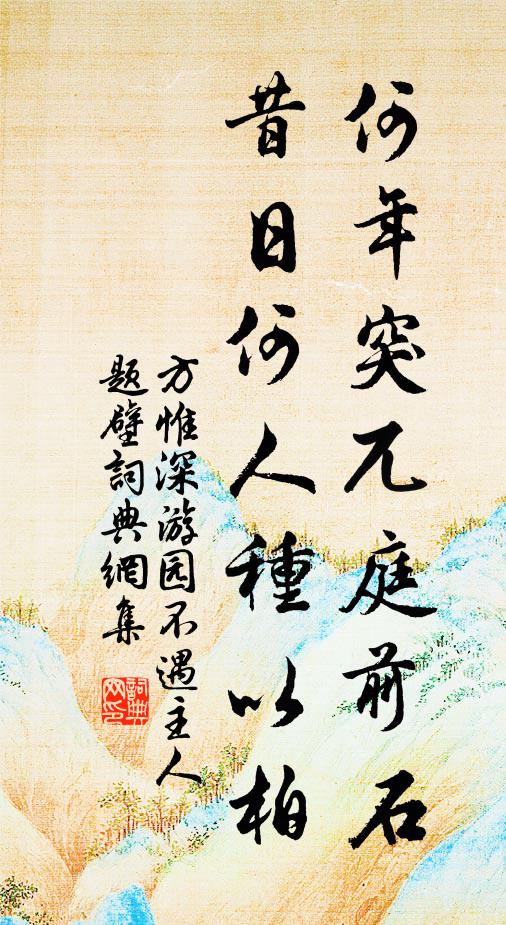 何年突兀庭前石
昔日何人種以柏
方惟深游园不遇主人
题壁詞典網集
詞典网印